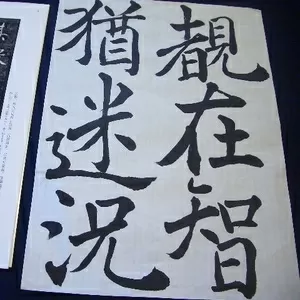 覩在智
猶迷況